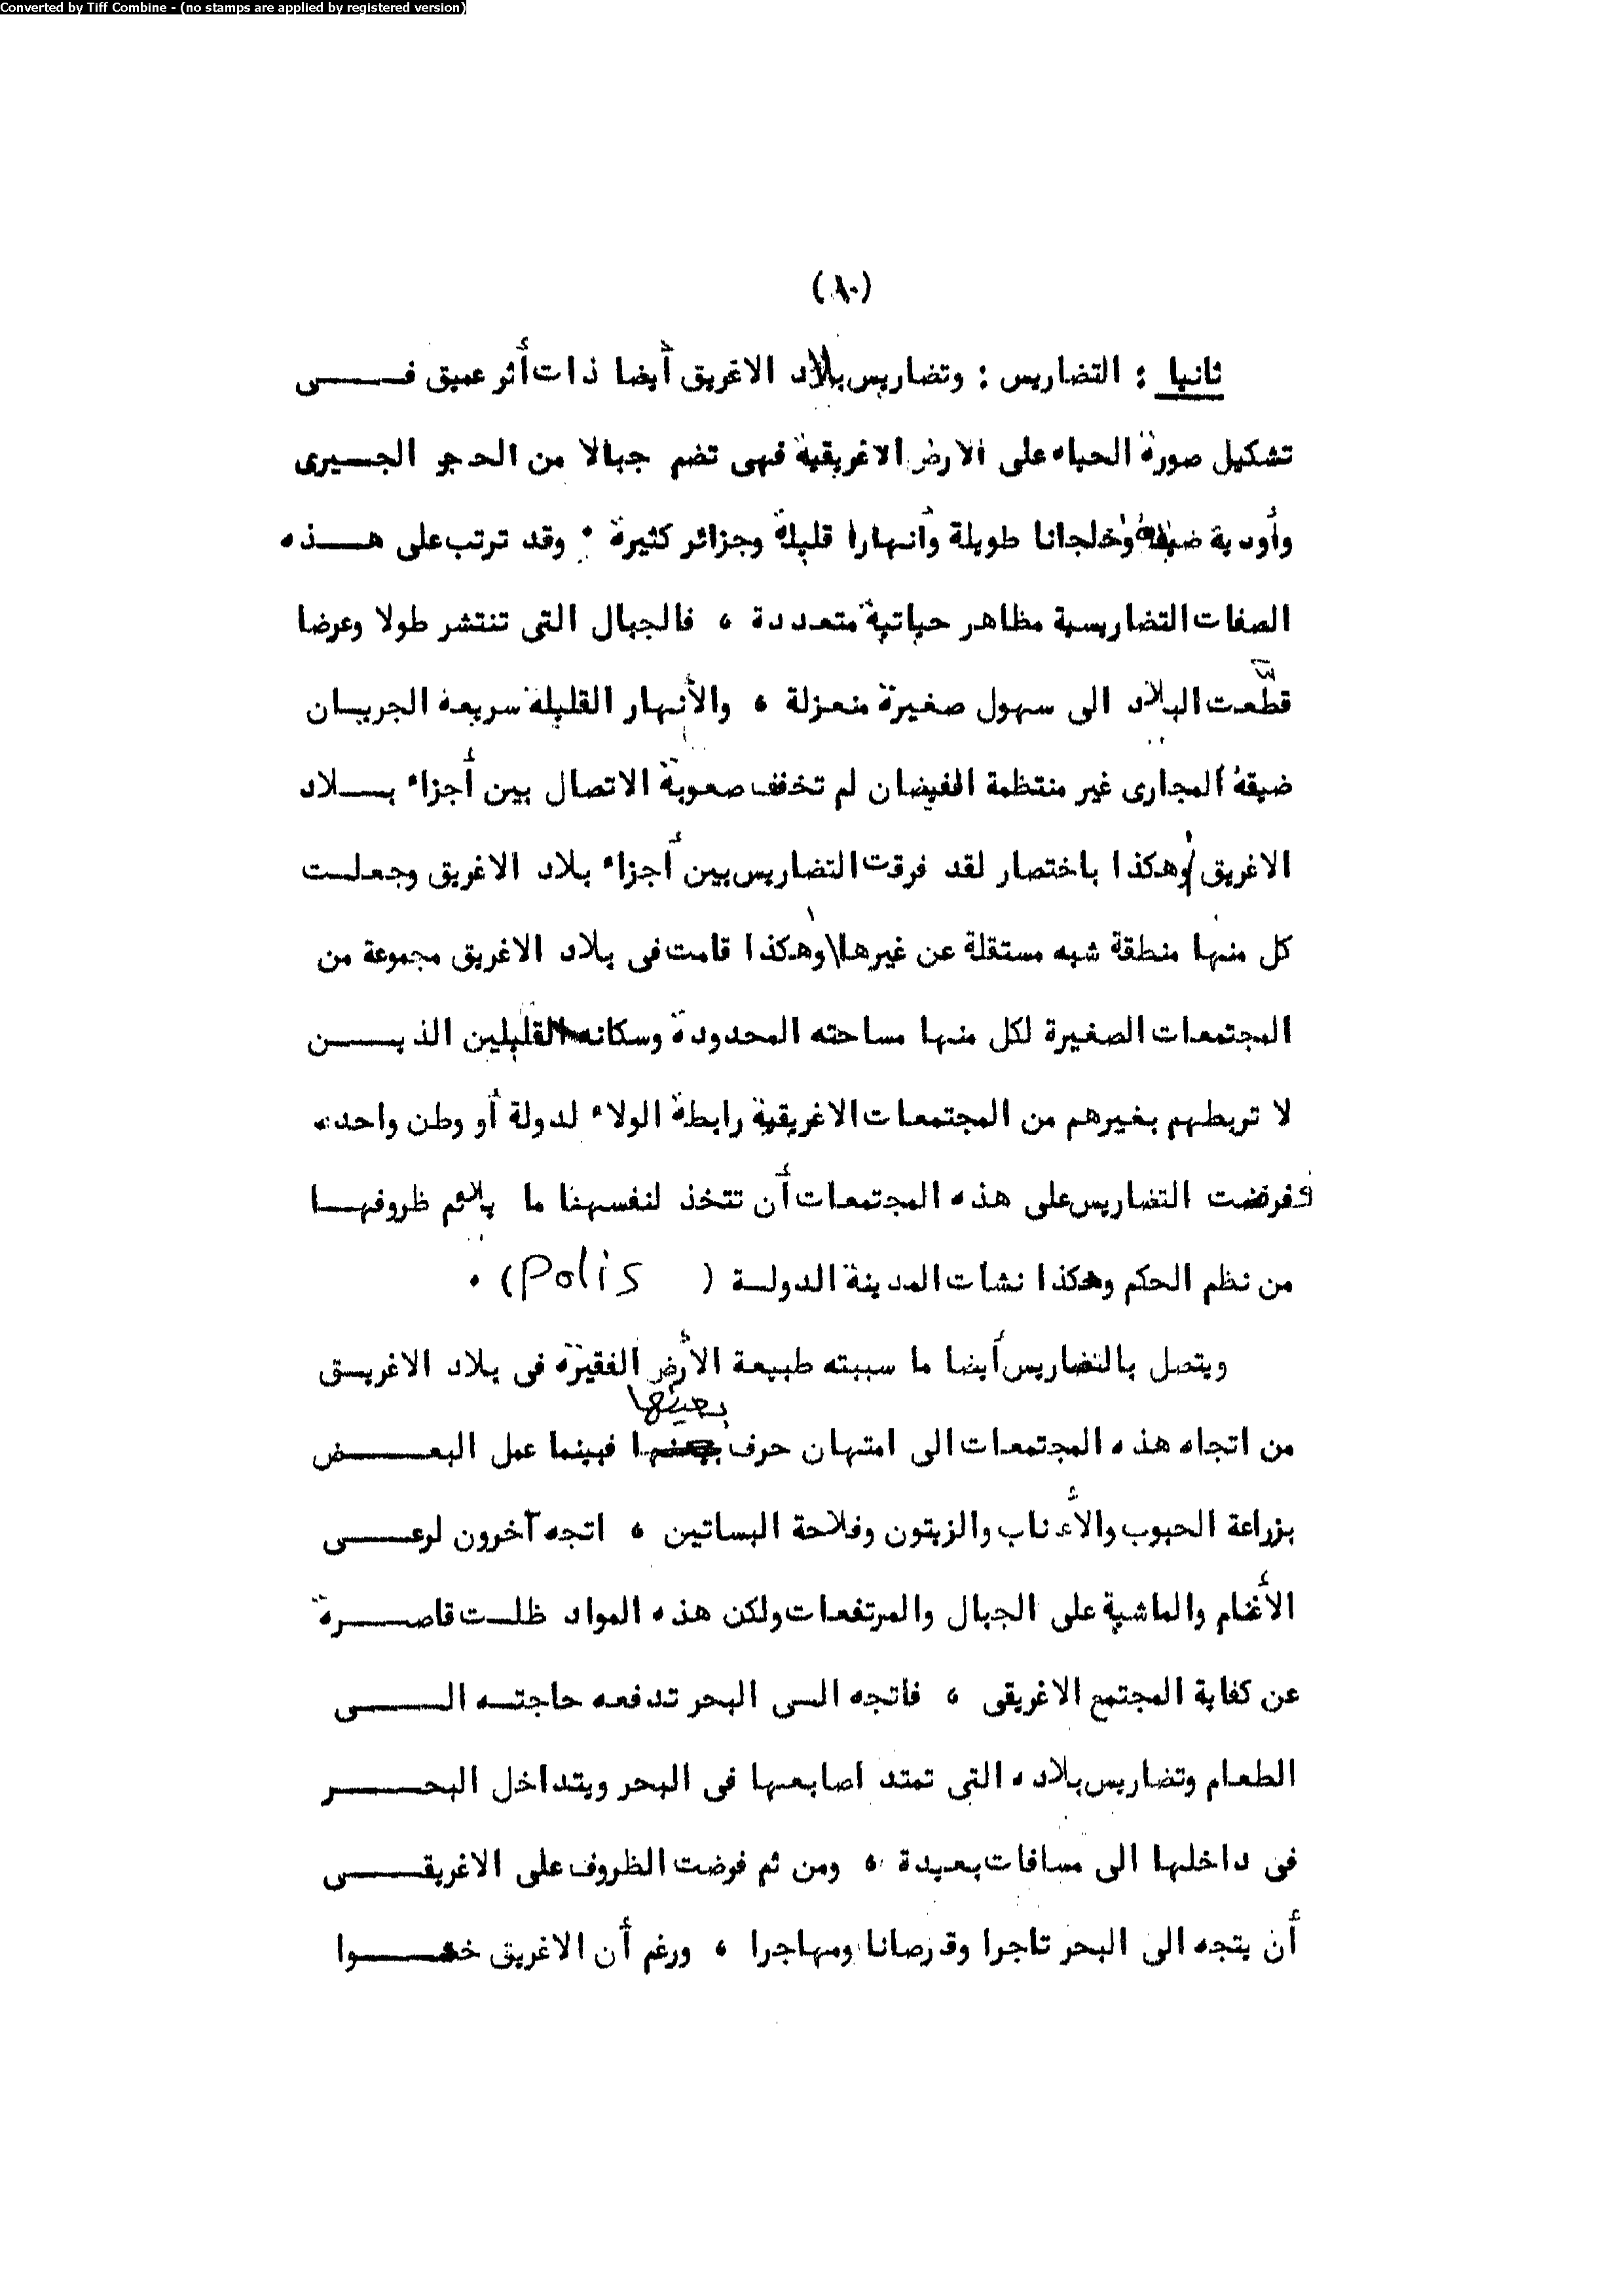 Converted by Tiff Combine - (no stamps are applied by registered version)
(٨٠)
ثانيا : التضاريس : وتضاريس بلاد الاغريق أيضا ذات أثر عميق فـــــى
تشكيل صورة الحياه على الارض الاغريقية فهى تضم جبالا من الحجر الجـــيرى
وأودية ضيقة وخلجانا طويلة وأنهارا قليلة وجزائر كثيرة ٠ وقد ترتب على هـــذه
الصفات التضاريسية مظاهر حياتية متعددة ، فالجبال التى تنتشر طولا وعرضا
قطّعت البلاد الى سهول صغيرة منعزلة ، والأنهار القليلة سريعة الجريــان
ضيقة المجارى غير منتظمة الفيضان لم تخفف صعوبة الاتصال بين أجزاء بــلاد
الاغريق وهكذا باختصار لقد فرقت التضاريس بين أجزاء بلاد الاغريق وجعلــت
كل منها منطقة شبه مستقلة عن غيرها وهكذا قامت فى بلاد الاغريق مجموعة من
المجتمعات الصغيرة لكل منها مساحته المحدودة وسكانه القليلين الذيــــن
لا تربطهم بغيرهم من المجتمعات الاغريقية رابطة الولاء لدولة أو وطن واحد،
ففرضت التضاريس على هذه المجتمعات أن تتخذ لنفسها ما يلائم ظروفهــا
من نظم الحكم وهكذا نشات المدينة الدولــة ( Polis ) ٠
ويتصل بالتضاريس أيضا ما سببته طبيعة الأرض الفقيرة فى بلاد الاغريــق
من اتجاه هذه المجتمعات الى امتهان حرف بعينها فبينما عمل البعــــض
بزراعة الحبوب والأعناب والزيتون وفلاحة البساتين ، اتجه آخرون لرعــــى
الأغنام والماشية على الجبال والمرتفعات ولكن هذه المواد ظلــت قاصــــرة
عن كفاية المجتمع الاغريقى ، فاتجه الــى البحر تدفعه حاجتــه الــــى
الطعام وتضاريس بلاده التى تمتد اصابعها فى البحر ويتداخل البحــــر
فى داخلها الى مسافات بعيدة ، ومن ثم فرضت الظروف على الاغريقــــى
أن يتجه الى البحر تاجرا وقرصانا ومهاجرا ، ورغم أن الاغريق